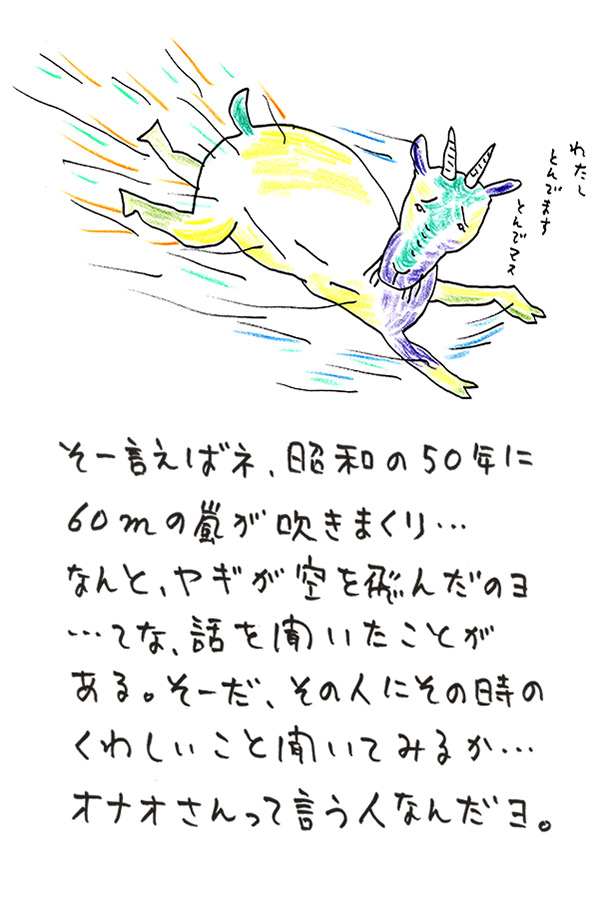 わたし
とんでます
とんでマス
そー言えばネ、昭和の50年に
60mの嵐が吹きまくり…
なんと、ヤギが空を飛んだのヨ
…てな、話を聞いたことが
ある。そーだ、その人にその時の
くわしいこと聞いてみるか…
オナオさんって言う人なんだヨ。